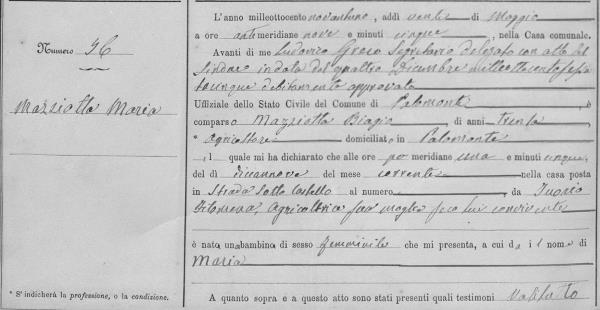 Numero 36
Mazziotta Maria
* S'indicherà la professione, o la condizione.
L'anno milleottocento novantuno, addì venti di Maggio
a ore anti meridiane nove e minuti cinque, nella Casa comunale.
Avanti di me Ludovico Greco Segretario Delegato con atto del
Sindaco in data del quattro Dicembre milleottocento
debitamente approvato
Uffiziale dello Stato Civile del Comune di Palomonte,
comparso Mazziotta Biagio, di anni trenta,
* agricoltore domiciliato in Palomonte
, il quale mi ha dichiarato che alle ore po meridiane una e minuti cinque,
del dì diciannove del mese corrente, nella casa posta
in Strada Sotto Castello al numero , da
agricoltrice sua moglie seco lui convivente
è nato un a bambin a di sesso femminile che mi presenta, a cui da il nome di
Maria
A quanto sopra e a questo atto sono stati presenti quali testimoni